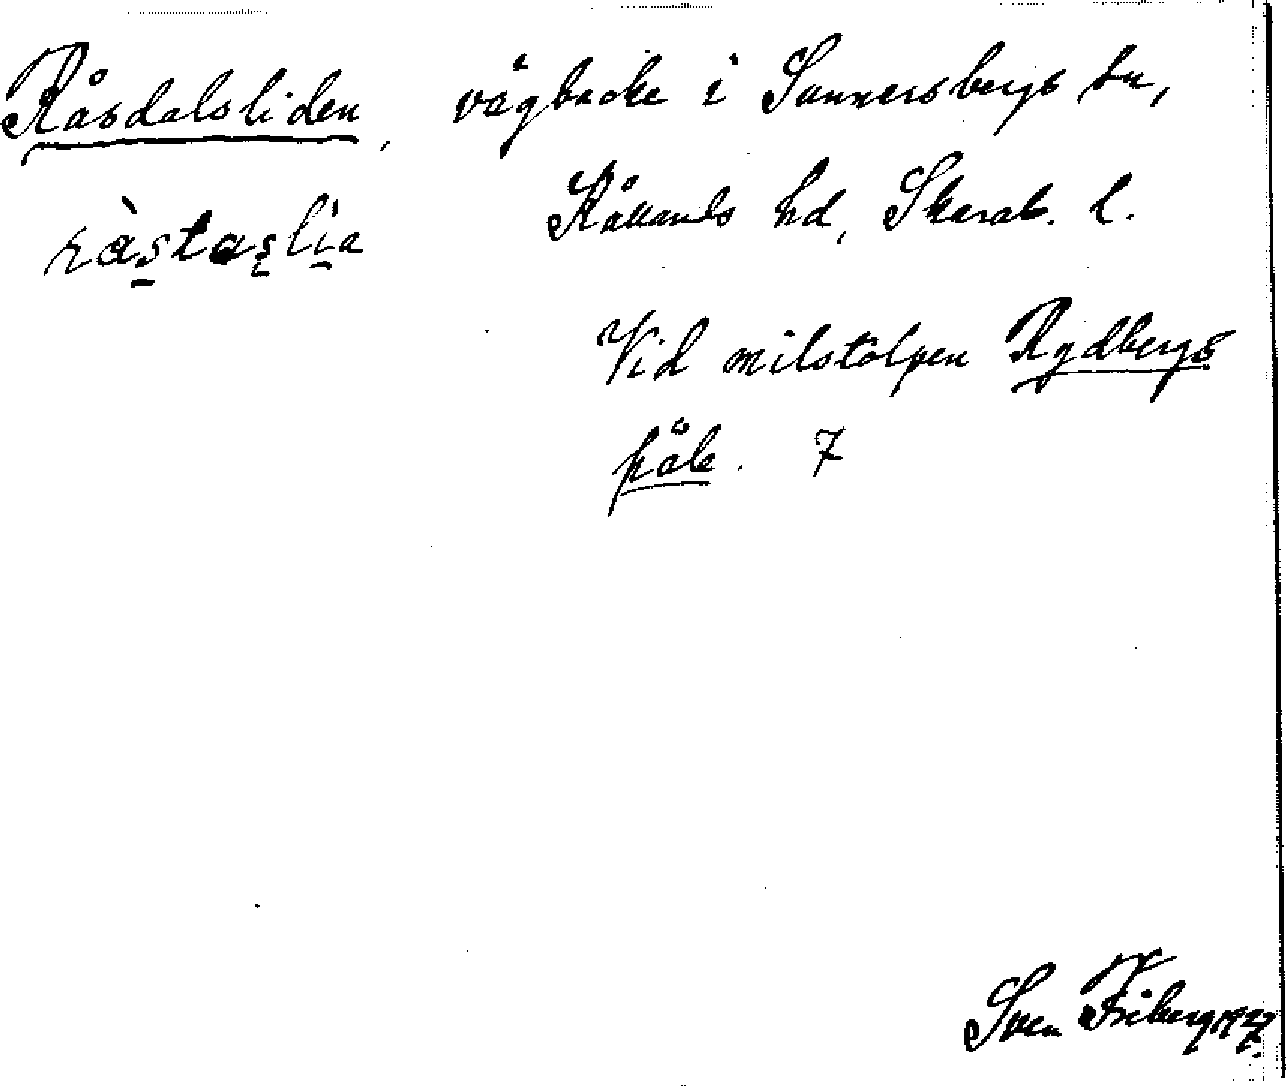 Råsdalsliden, vägbacke i Sunnersbergs sn,
ràstaslìa Kållands hd, Skarab. l.
Vid milstolpen Rydbergs
påle. 7
Sven Friberg 1927.